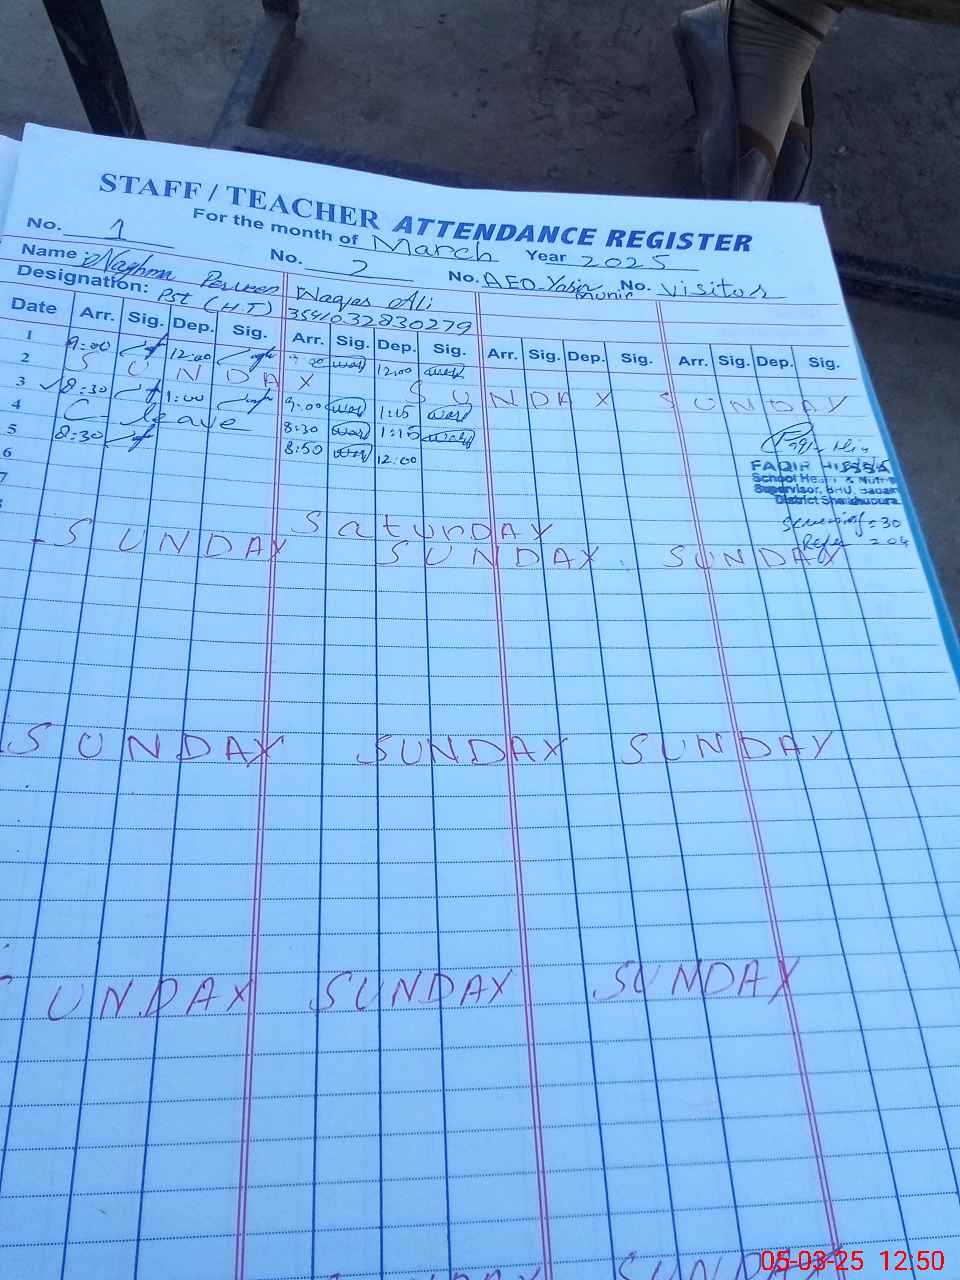 STAFF / TEACHER ATTENDANCE REGISTER
For the month of March Year 2025
No. 1 No. 2 No. AEO-Yasir Munir No. visitor
Name: Naghma Perveen Waqas Ali
Designation: Pst (H.T) 3541032830279
Date Arr. Sig. Dep. Sig. Arr. Sig. Dep. Sig. Arr. Sig. Dep. Sig. Arr. Sig. Dep. Sig.
1 9:00 12:00 12:00
2 SUNDAY SUNDAY SUNDAY
3 8:30 1:00 9:00 1:15
4 C- leave 8:30 1:15
5 8:30 8:50 12:00
6
7
FAQIR
School Health & Nutrition
Supervisor, BHU,
District Sheikhupura
Screening = 30
Refer = 04
Saturday
SUNDAY SUNDAY SUNDAY
SUNDAY SUNDAY SUNDAY
SUNDAY SUNDAY SUNDAY
SUNDAY
05-03-25 12:50